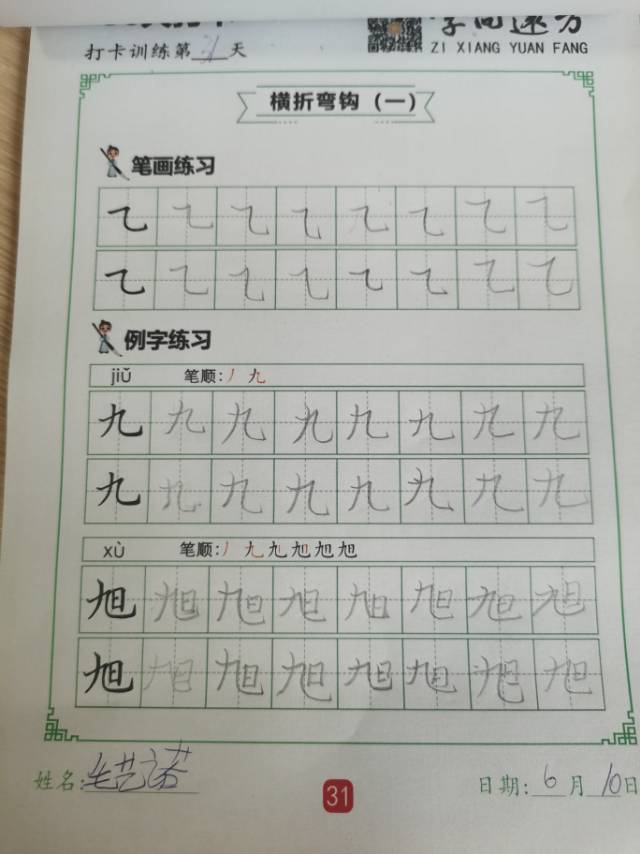 字向速方
打卡训练第31天
ZI XIANG YUAN FANG
横折弯钩（一）
笔画练习
乙 乙 乙 乙 乙 乙 乙 乙
乙 乙 乙 乙 乙 乙 乙 乙
例字练习
jiǔ 笔顺:丿九
九 九 九 九 九 九 九 九
九 九 九 九 九 九 九 九
xù 笔顺:丿九九旭旭旭
旭 旭 旭 旭 旭 旭 旭 旭
旭 旭 旭 旭 旭 旭 旭 旭
姓名:毛艺诺
31
日期:6月10日